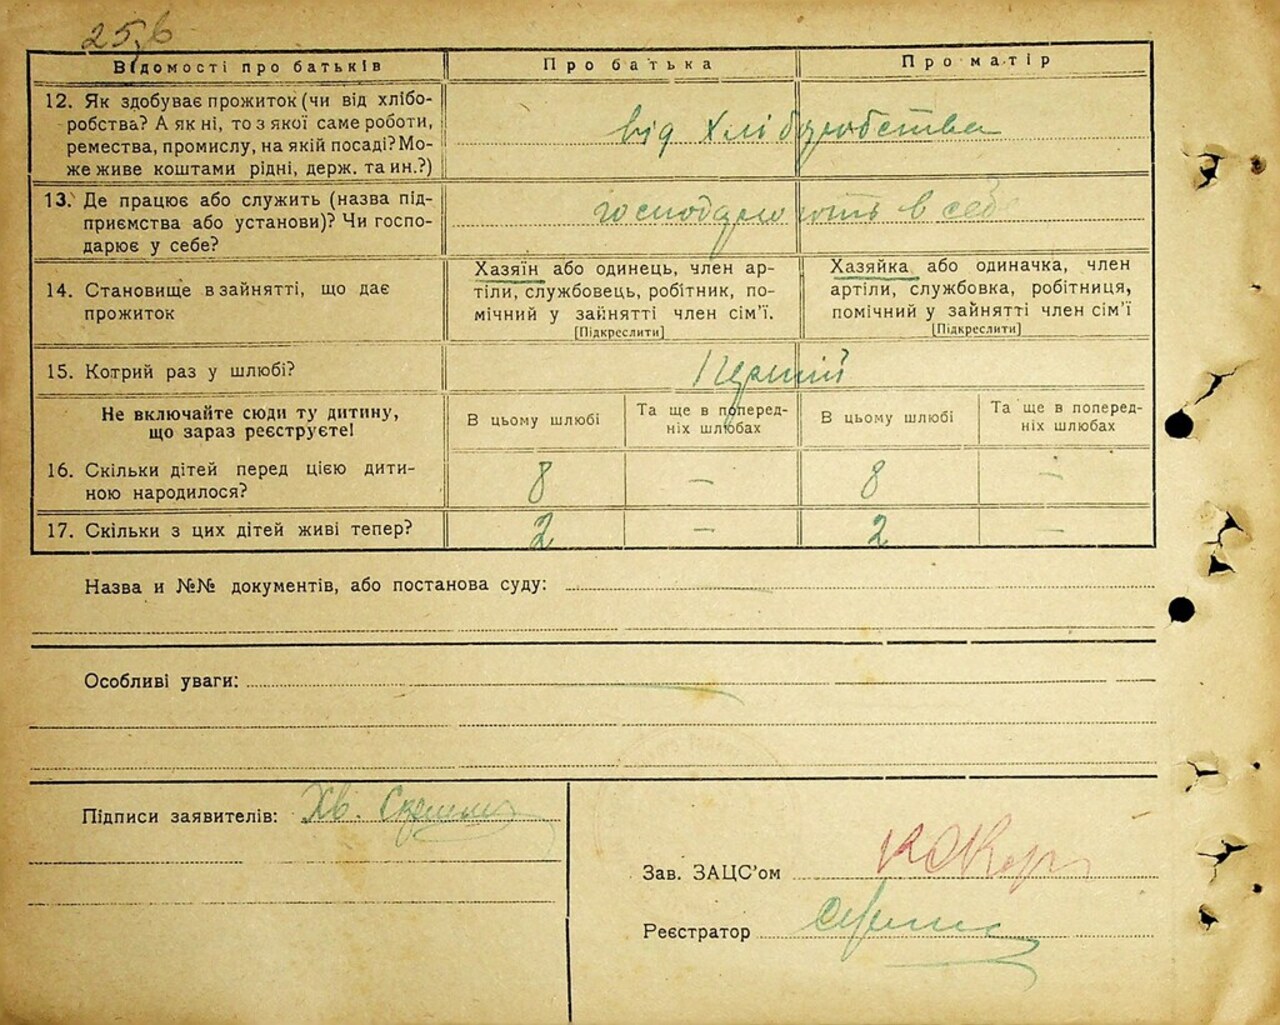 25,6
Відомості про батьків
Про батька
Про матір
12. Як здобуває прожиток (чи від хлібо-
робства? А як ні, то з якої саме роботи,
ремества, промислу, на якій посаді? Мо-
же живе коштами рідні, держ. та ин.?)
від хліборобства
13. Де працює або служить (назва під-
приємства або установи)? Чи госпо-
дарює у себе?
господарюють в себе
14. Становище в зайнятті, що дає
прожиток
Хазяїн або одинець, член ар-
тіли, службовець, робітник, по-
мічний у зайнятті член сім'ї.
[Підкреслити]
Хазяйка або одиначка, член
артіли, службовка, робітниця,
помічний у зайнятті член сім'ї
[Підкреслити]
15. Котрий раз у шлюбі?
Перший
Не включайте сюди ту дитину,
що зараз реєструєте!
В цьому шлюбі
Та ще в поперед-
ніх шлюбах
В цьому шлюбі
Та ще в поперед-
ніх шлюбах
16. Скільки дітей перед цією дити-
ною народилося?
8 — 8 —
17. Скільки з цих дітей живі тепер?
2 — 2 —
Назва и №№ документів, або постанова суду:
Особливі уваги:
Підписи заявителів: Хв.
Зав. ЗАЦС'ом
Реєстратор